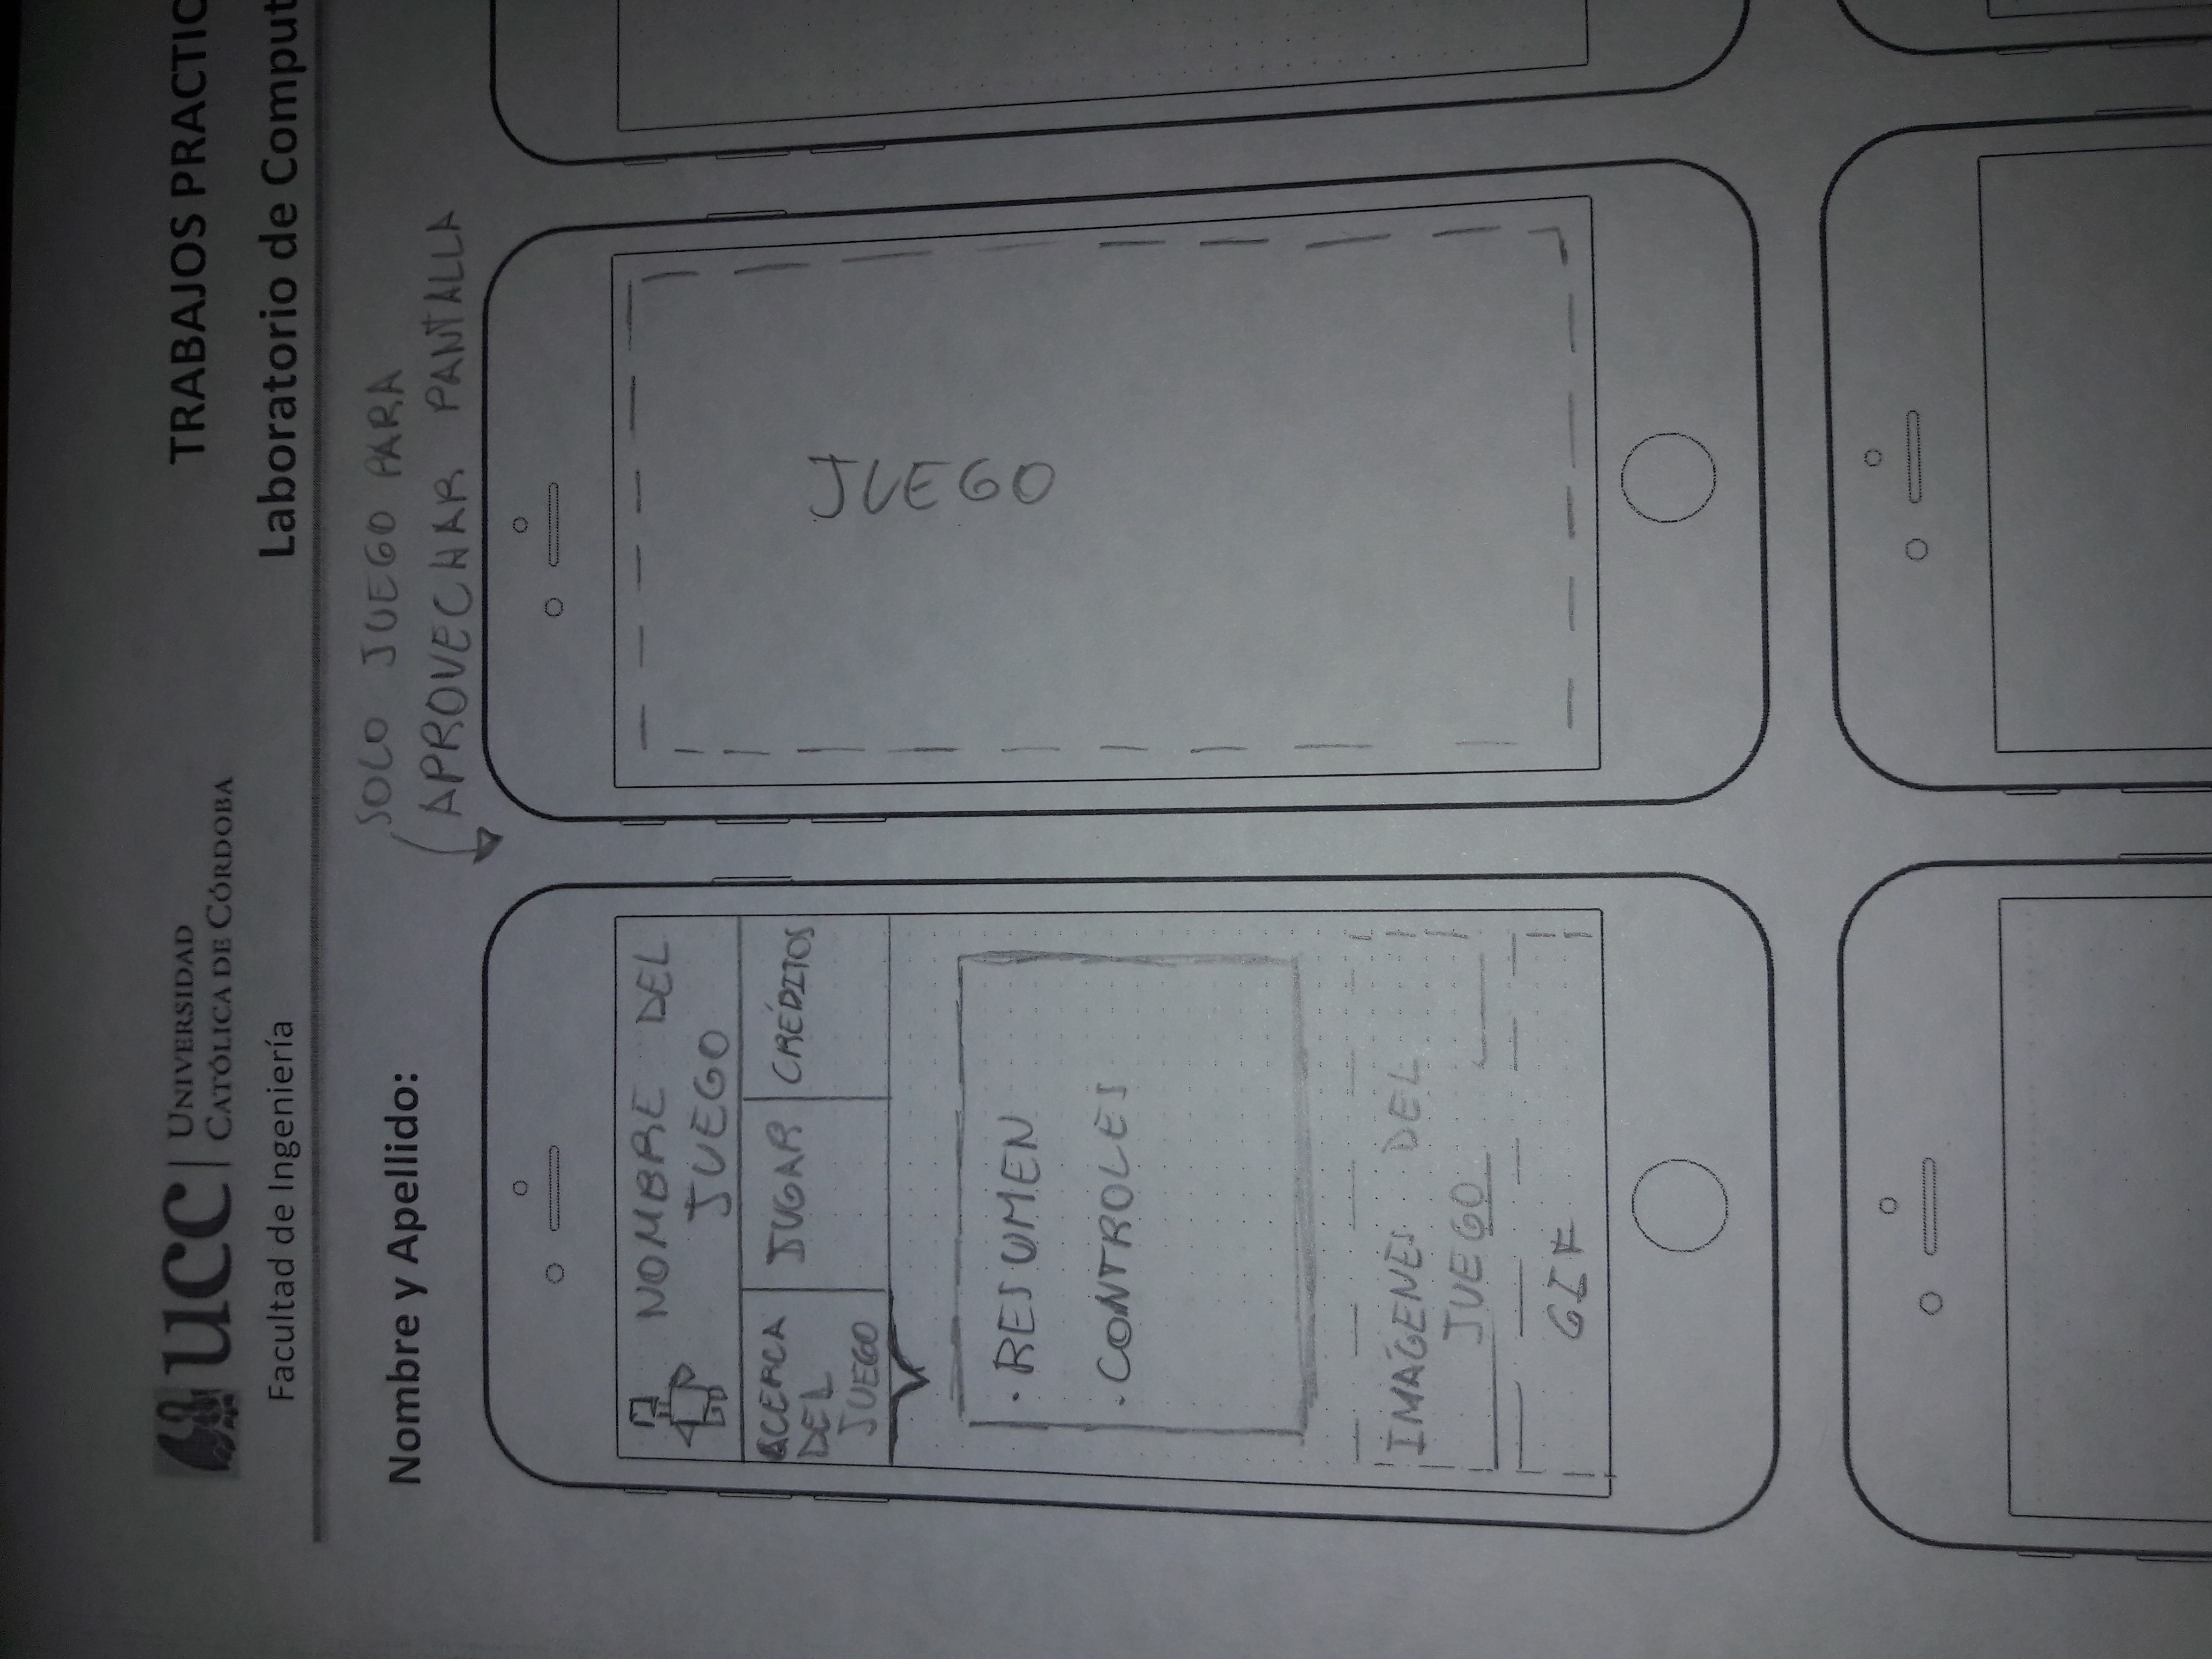 UCC
UNIVERSIDAD
CATÓLICA DE CÓRDOBA
Facultad de Ingeniería
TRABAJOS PRACTIC
Laboratorio de Comput
Nombre y Apellido:
SOLO JUEGO PARA
APROVECHAR PANTALLA
NOMBRE DEL
JUEGO
ACERCA
DEL
JUEGO
JUGAR
CRÉDITOS
· RESUMEN
· CONTROLES
IMÁGENES DEL
JUEGO
GIF
JUEGO